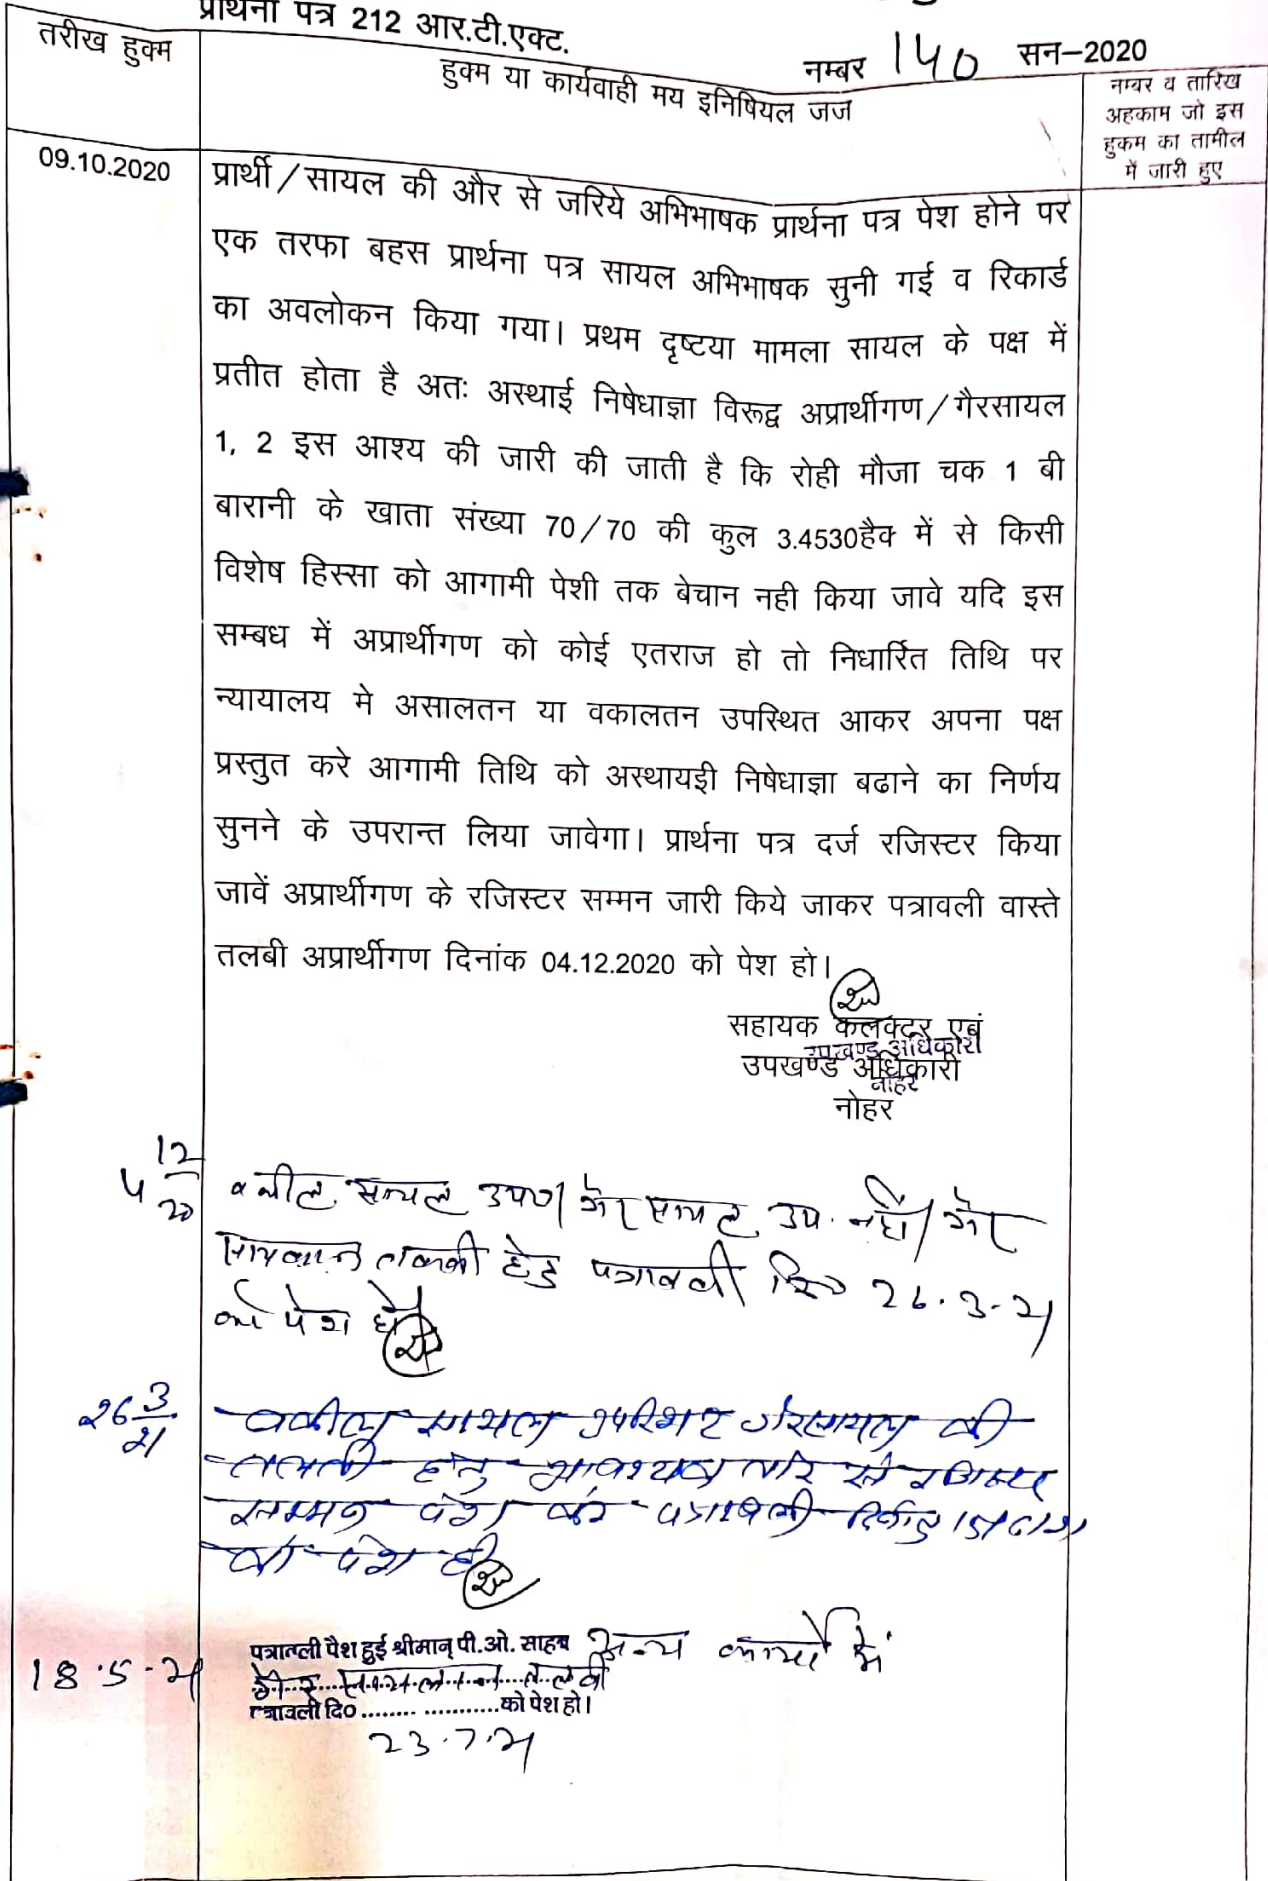 प्रार्थना पत्र 212 आर.टी.एक्ट.
नम्बर 140 सन–2020
तरीख हुक्म
हुक्म या कार्यवाही मय इनिषियल जज
नम्बर व तारिख
अहकाम जो इस
हुकम का तामील
में जारी हुए
09.10.2020
प्रार्थी/सायल की और से जरिये अभिभाषक प्रार्थना पत्र पेश होने पर
एक तरफा बहस प्रार्थना पत्र सायल अभिभाषक सुनी गई व रिकार्ड
का अवलोकन किया गया। प्रथम दृष्टया मामला सायल के पक्ष में
प्रतीत होता है अतः अस्थाई निषेधाज्ञा विरूद्व अप्रार्थीगण/गैरसायल
1, 2 इस आश्य की जारी की जाती है कि रोही मौजा चक 1 बी
बारानी के खाता संख्या 70/70 की कुल 3.4530हैक में से किसी
विशेष हिस्सा को आगामी पेशी तक बेचान नही किया जावे यदि इस
सम्बध में अप्रार्थीगण को कोई एतराज हो तो निधार्रित तिथि पर
न्यायालय मे असालतन या वकालतन उपस्थित आकर अपना पक्ष
प्रस्तुत करे आगामी तिथि को अस्थायइी निषेधाज्ञा बढाने का निर्णय
सुनने के उपरान्त लिया जावेगा। प्रार्थना पत्र दर्ज रजिस्टर किया
जावें अप्रार्थीगण के रजिस्टर सम्मन जारी किये जाकर पत्रावली वास्ते
तलबी अप्रार्थीगण दिनांक 04.12.2020 को पेश हो।
सहायक कलक्टर एवं
उपखण्ड अधिकारी
उपखण्ड अधिकारी
नोहर
नोहर
4 12/20
वकील सायल उप0/ गैर सायल उप. नहीं/ गैर
सायलान तलबी हेतु पत्रावली दि0 26.3.21
को पेश हो
26 3/21
वकील सायल उपस्थित गैरसायल की
तलबी हेतु आवश्यक तौर से रजिस्टर
सम्मन पेश करे पत्रावली दिनांक
को पेश हो
18.5.21
पत्रावली पेश हुई श्रीमान् पी.ओ. साहब अन्य कार्यों में
गैर सायलान तलबी
पत्रावली दि० .................... को पेश हो।
23.7.21